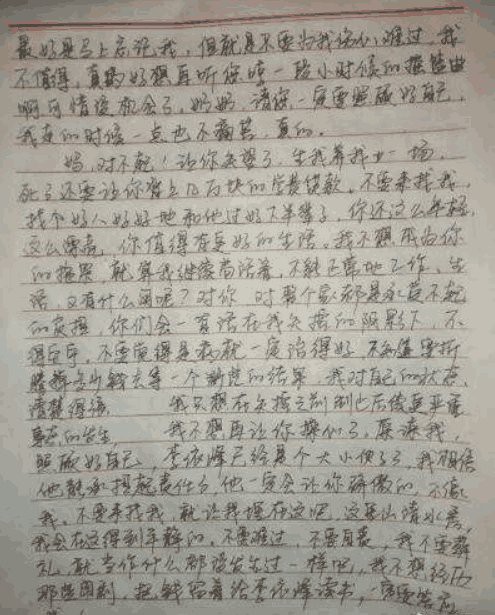 最好是马上忘记我，但就是不要为我伤心，难过，我
不值得，真的好想再听你哼一段小时候的摇篮曲
啊可惜没机会了，妈妈，请您一定要照顾好自己，
我走的时候一点也不痛苦，真的。
妈，对不起！让你失望了，生我养我一场，
死了还要让你背上几万块的学费贷款，不要来找我，
找个好人好好地和他过好下半辈子，你还这么年轻，
这么漂亮，你值得有更好的生活，我不想成为你
的拖累，就算我继续苟活着，不能正常地工作、生
活，又有什么用呢？对你，对整个家都是永莫不起
的灾难，你们会一直活在我失控的阴影下，不
得安宁，不要觉得是病就一定治得好，不值得
钱去等一个的结果，我对自己的状态，
清楚得很，我只想在失控之前别让后续更严重
事态的发生，我不想再让你操心了，原谅我，
照顾好自己，李依泽已经是个大小伙子了，我相信
他能承担起责任了，他一定会让你骄傲的，不像
我，不要来找我，就让我埋在这吧，这里山清水秀，
我会在这得到安静的，不要难过，不要自责，我不要葬
礼，就当作什么都没发生过一样吧，我不想经历
那些，把钱留着给李依泽读书，一定要